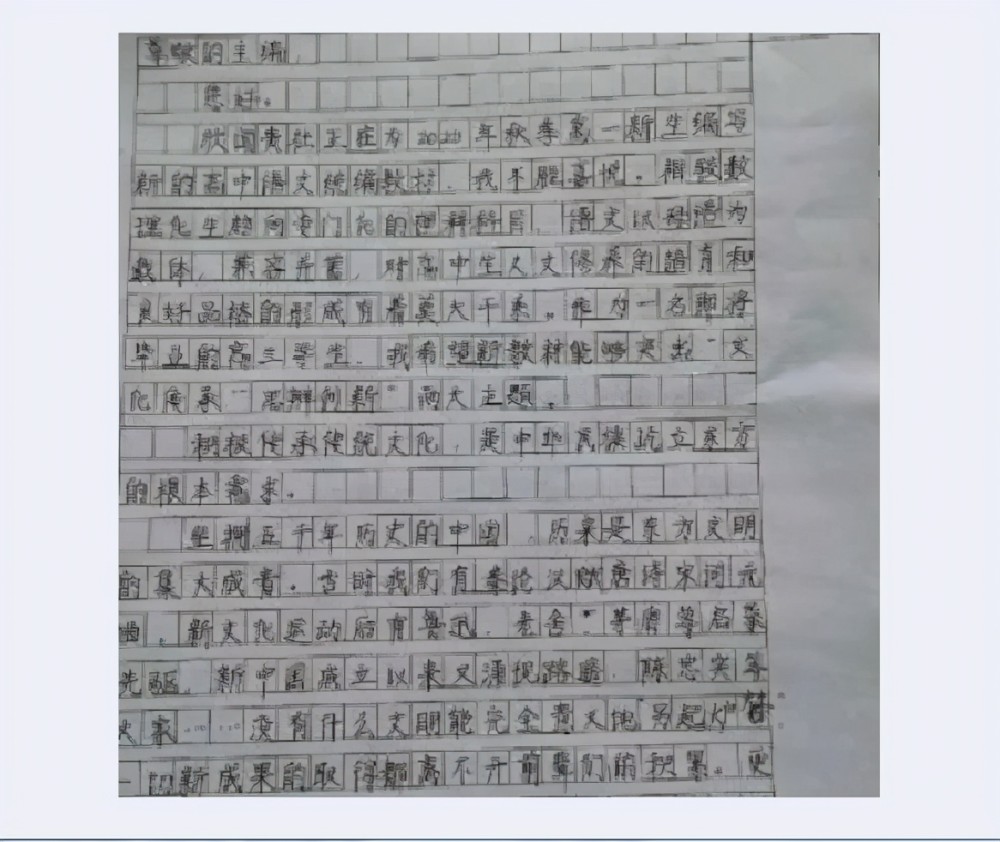 尊敬的主编:
您好。
欣闻贵社正在为2022年秋季高一新生编写
新的高中语文统编教材,我不胜喜悦。相较数
理化生趋向专门化的理科教育,语文以经治为
载体,兼容并蓄,对高中生人文修养的培育和
良好品德的形成有着莫大干系。作为一名即将
毕业的高三学生,我希望新教材能够突出“文
化传承”“思辨创新”两大主题。
积极传承传统文化,是中华民族屹立东方
的根本要求。
坐拥五千年历史的中国,历来是东方文明
的集大成者。古时我们有唐诗宋词元
曲,新文化运动后有鲁迅、老舍等
先驱,新中国成立以来又涌现路遥、陈忠实等
大家……没有什么文明能完全另起炉
一切新成果的取得都离不开前辈们的积累。更